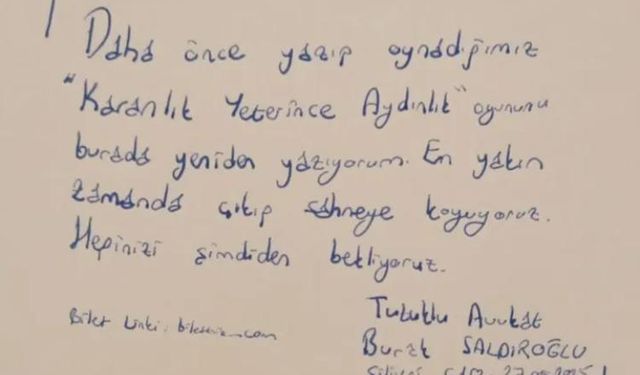 Daha önce yazıp oynadığımız
"Karanlık Yeterince Aydınlık" oyununu
burada yeniden yazıyorum. En yakın
zamanda çıkıp sahneye koyuyoruz.
Hepinizi şimdiden bekliyoruz.
Bilet Linki:
Tutuklu Avukat
Burak SALDIROĞLU